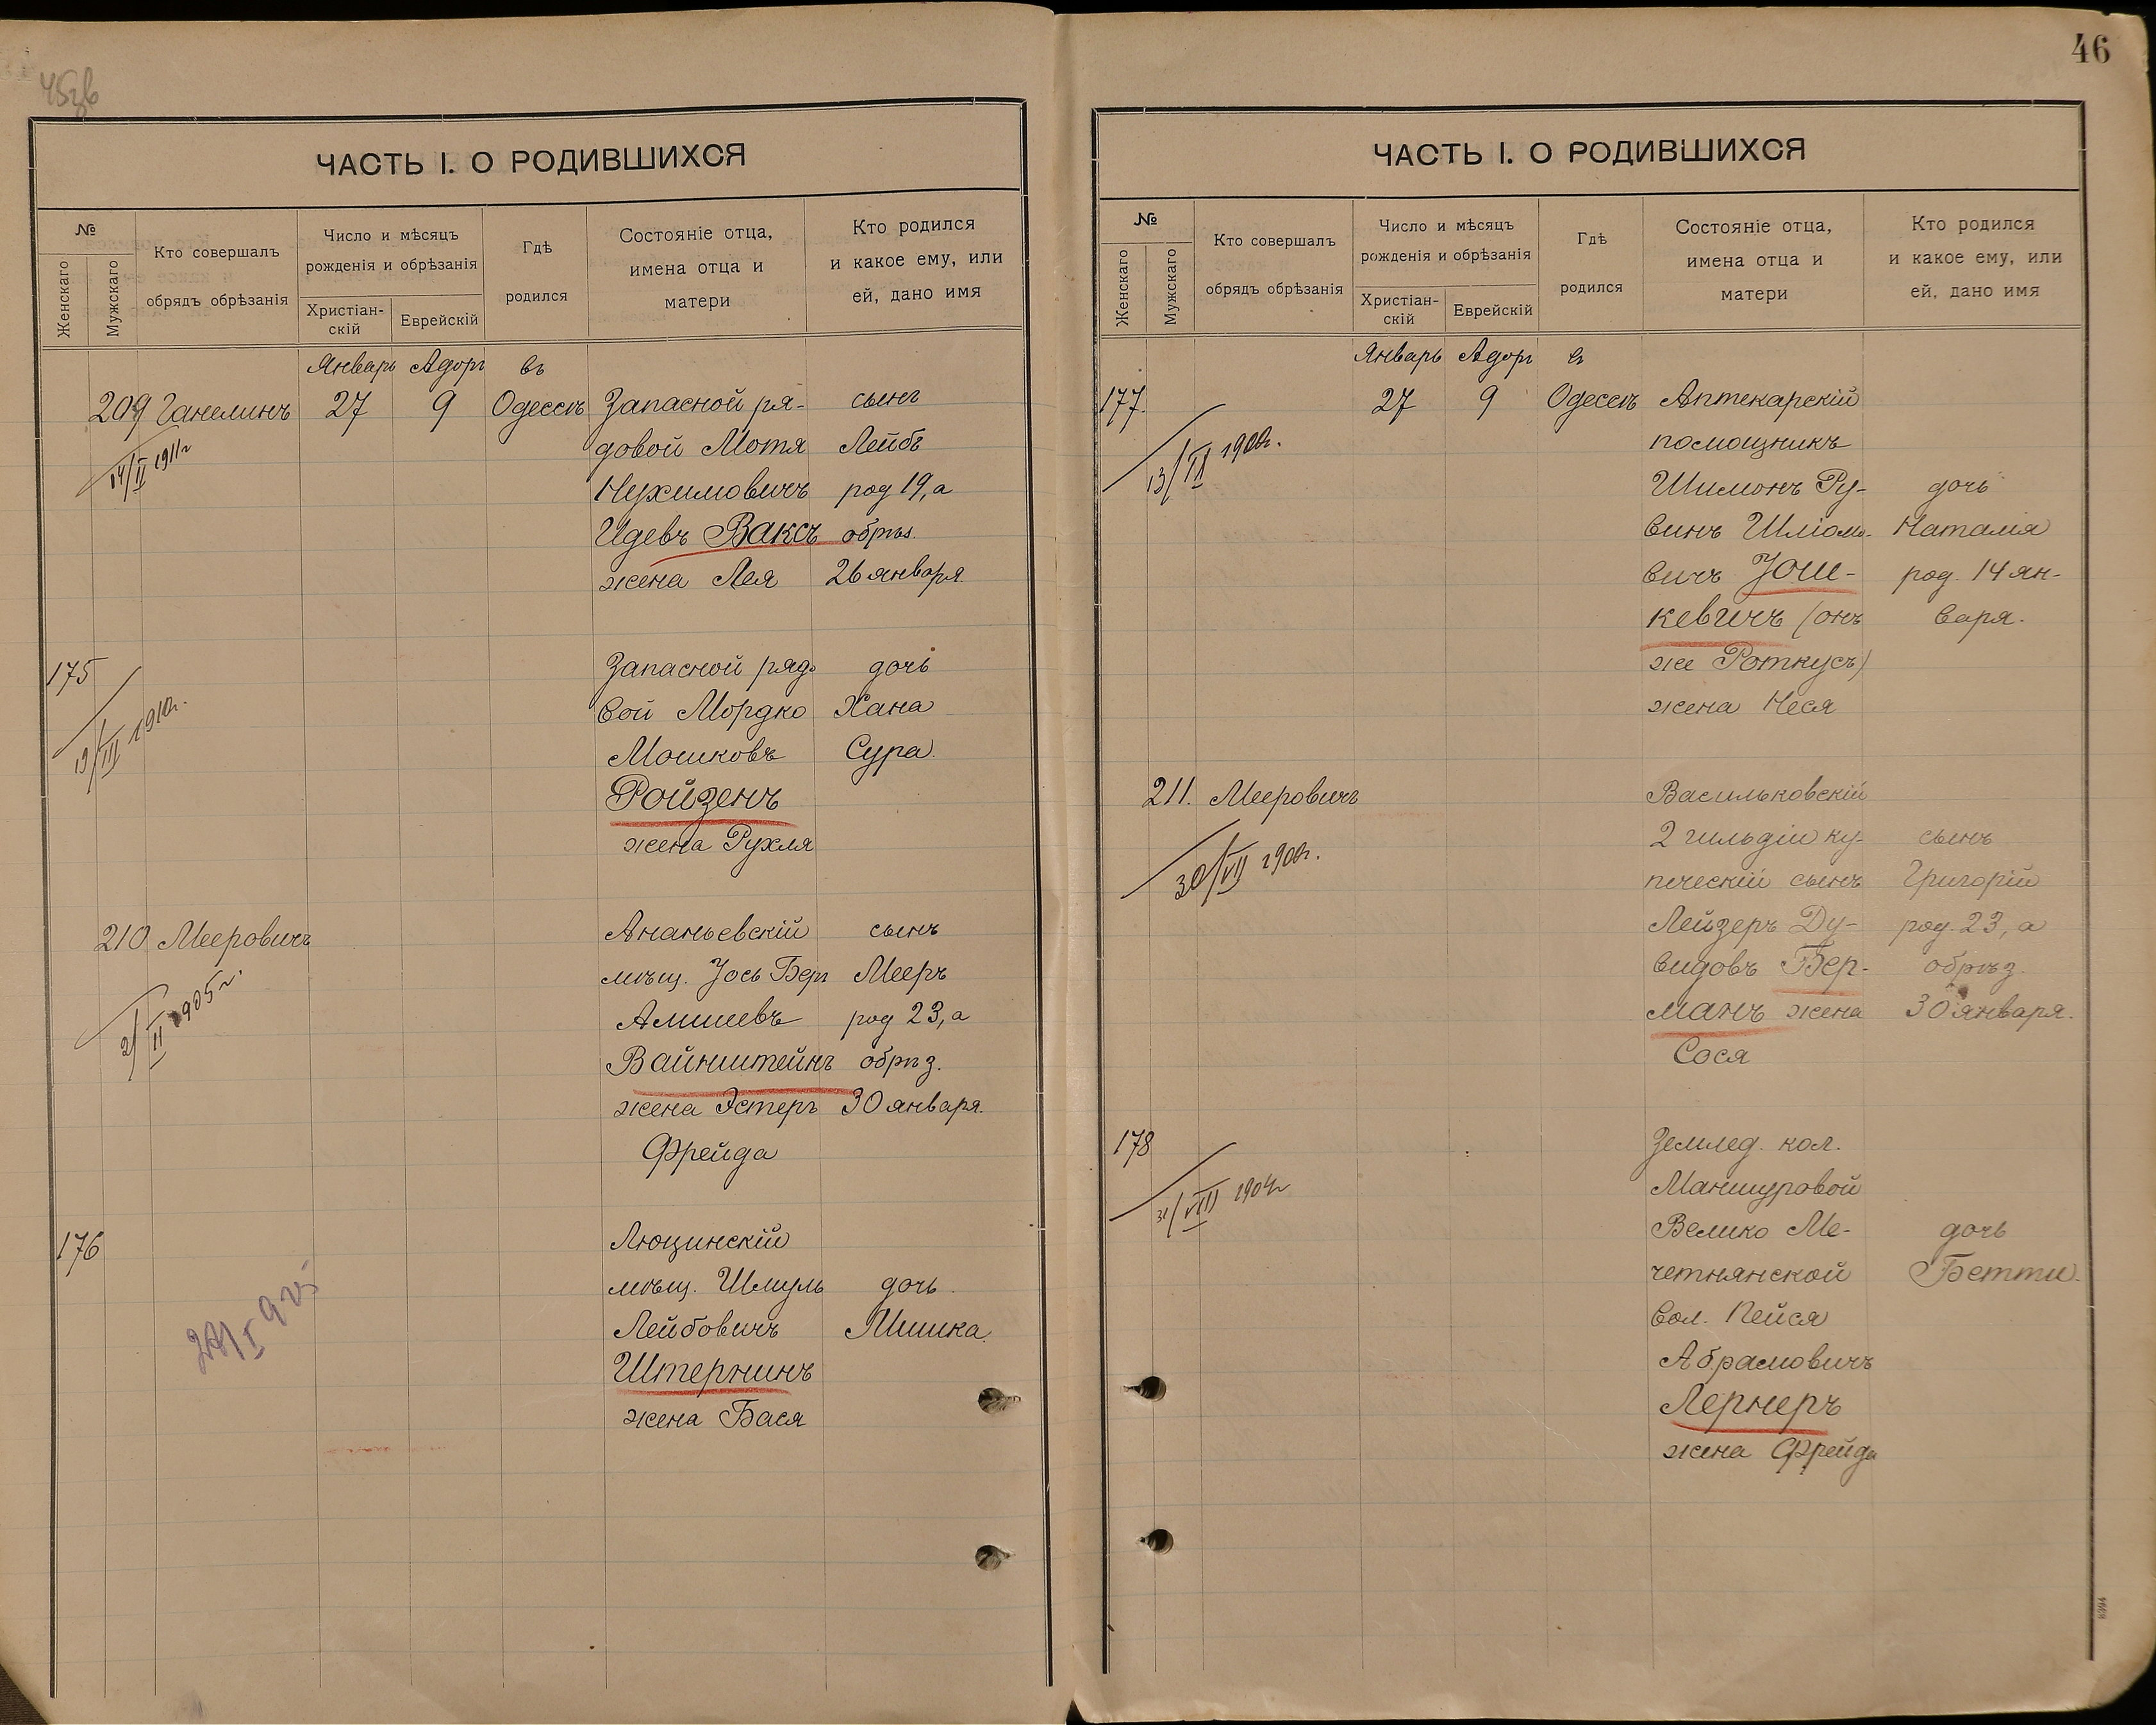 46
ЧАСТЬ I. О РОДИВШИХСЯ
№
Женскаго
Мужскаго
Кто совершалъ
обрядъ обрѣзанія
Число и мѣсяцъ
рожденія и обрѣзанія
Христіан-
скій
Еврейскій
Гдѣ
родился
Состояніе отца,
имена отца и
матери
Кто родился
и какое ему, или
ей, дано имя
Январь Адаръ въ
209 Ганелинъ 27 9 Одессѣ Запасной ря- сынъ
14/II 1911г
довой Мотя Лейбъ
Нухимовичъ род 19, а
Идевъ Ваксъ обрѣз.
жена Лея 26 января
175 Запасной рядо дочь
19/III 1910г.
вой Мордко Хана
Мошковъ Сура.
Ройзенъ
жена Рухля
210 Мееровичъ Ананьевскій сынъ
2/II 1905г
мѣщ. Іось Бер Мееръ
род 23, а
Вайнштейнъ обрѣз.
жена Эстеръ 30 января.
Фрейда
176 Люцинскій
мѣщ. Шмуль дочь
Лейбовичъ Мишка.
Штернинъ
жена Бася
ЧАСТЬ I. О РОДИВШИХСЯ
№
Женскаго
Мужскаго
Кто совершалъ
обрядъ обрѣзанія
Число и мѣсяцъ
рожденія и обрѣзанія
Христіан-
скій
Еврейскій
Гдѣ
родился
Состояніе отца,
имена отца и
матери
Кто родился
и какое ему, или
ей, дано имя
Январь Адаръ въ
177. 27 9 Одессѣ Аптекарскій
помощникъ
Шимонъ Ру- дочь
винъ Шліомо- Наталія
вичъ Юш- род. 14 ян-
кевичъ (онъ варя.
же Роткусъ)
жена Неся
211. Мееровичъ Васильковскій
30/VII 1900г.
2 гильдіи ку- сынъ
печескій сынъ Григорій
Лейзеръ Ду- род. 23, а
видовъ Бер- обрѣз.
манъ жена 30 января.
Сося
178 Землед. кол.
31/VIII 1904г
Маншуровой
Велико Ме- дочь
четнянской Бетти.
вол. Пейся
Абрамовичъ
Лернеръ
жена Фрейда